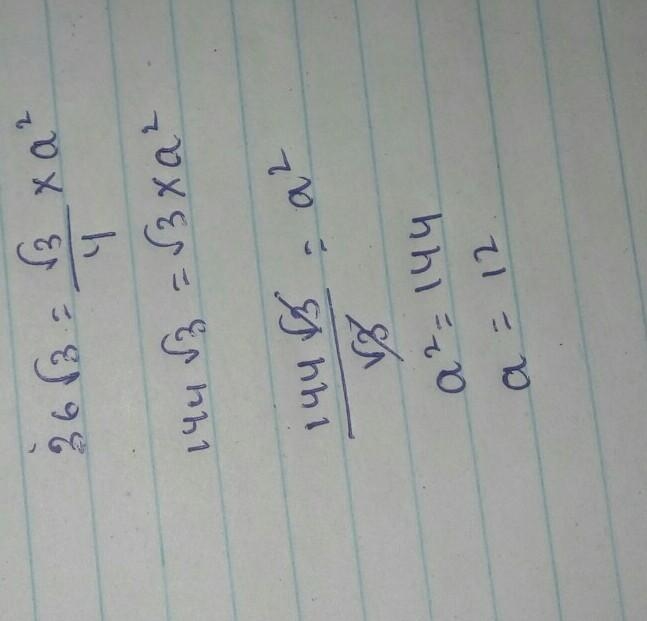 36√3 = √3/4 × a²
144√3 = √3 × a²
144√3/√3 = a²
a² = 144
a = 12